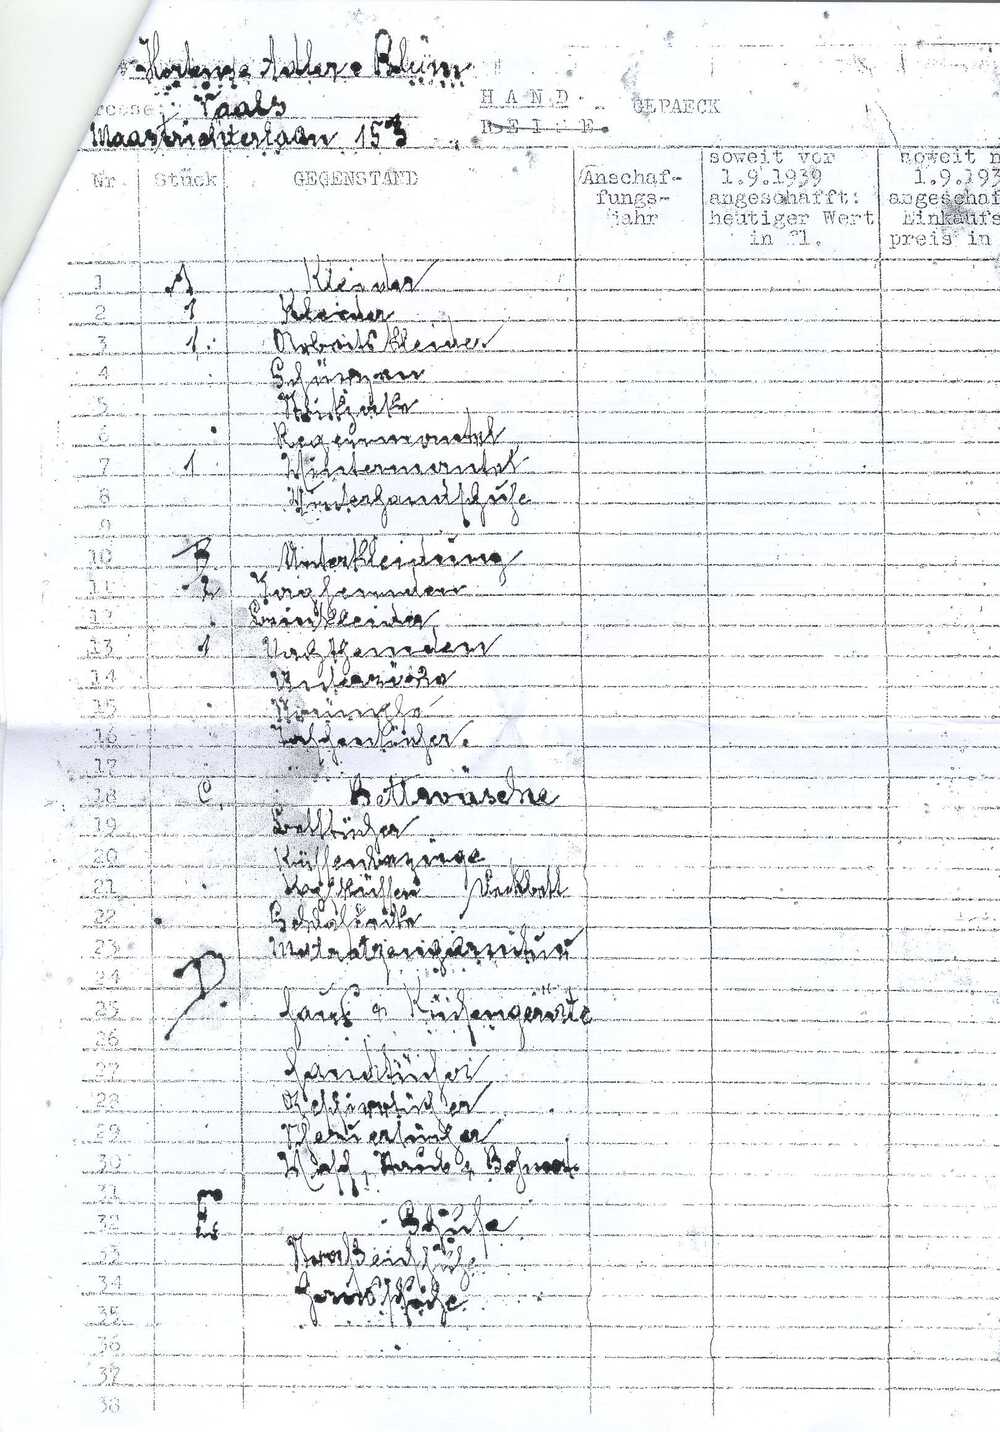 Hortense Adler-Blüm
resse: Vaals
H A N D - GEPAECK
R E I S E -
Maastrichterlaan 153
Nr. Stück GEGENSTAND Anschaf-fungs-jahr soweit vor 1.9.1939 angeschafft: heutiger Wert in fl. soweit n 1.9.193 angeschaf Einkaufs preis in
1 A Kleider
2 1 Kleider
3 1 Arbeitskleider
4 Schürzen
5 Strickjacke
6 Regenmantel
7 1 Wintermantel
8 Winterhandschuhe
9
10 B Unterkleidung
11 2 Taghemden
12 Beinkleider
13 1 Nachthemden
14 Unterröcke
15 Strümpfe
16 Taschentücher.
17
18 C Bettwäsche
19 Betttücher
20 Küssenbezüge
21 Kopfküssen Deckbett
22 Schlafdecke
23 Matratzengarnitur
24 D.
25 Haus & Küchengeräte
26
27 Handtücher
28 Geschirrtücher
29 Scheuertücher
30 Wasch, Staub & Bohnert.
31
32 E Schuhe
33 Straßenschuhe
34 Hausschuhe
35
36
37
38